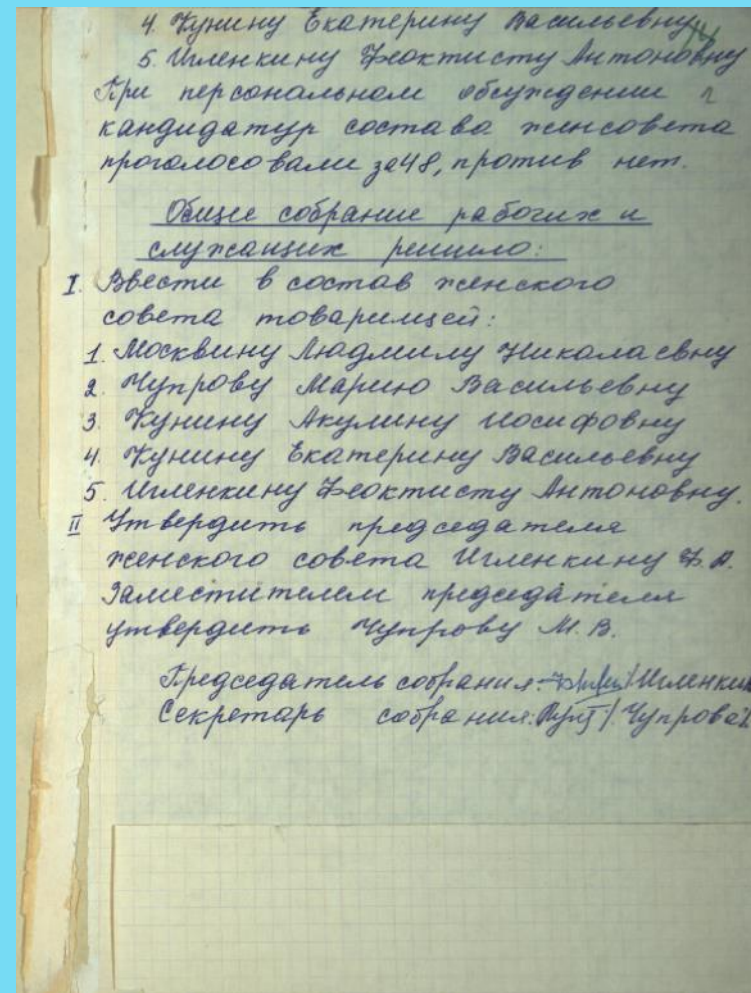 4. Кунину Екатерину Васильевну
5. Игленкину Феоктисту Антоновну
При персональном обсуждении
кандидатур состава женсовета
проголосовали за 48, против нет.
Общее собрание рабочих и
служащих решило:
I. Ввести в состав женского
совета товарищей:
1. Москвину Людмилу Николаевну
2. Чупрову Марию Васильевну
3. Кунину Акулину Иосифовну
4. Кунину Екатерину Васильевну
5. Игленкину Феоктисту Антоновну.
II Утвердить председателя
женского совета Игленкину Ф.А.
Заместителем председателя
утвердить Чупрову М.В.
Председатель собрания: /Игленкин
Секретарь собрания: / Чупрова/